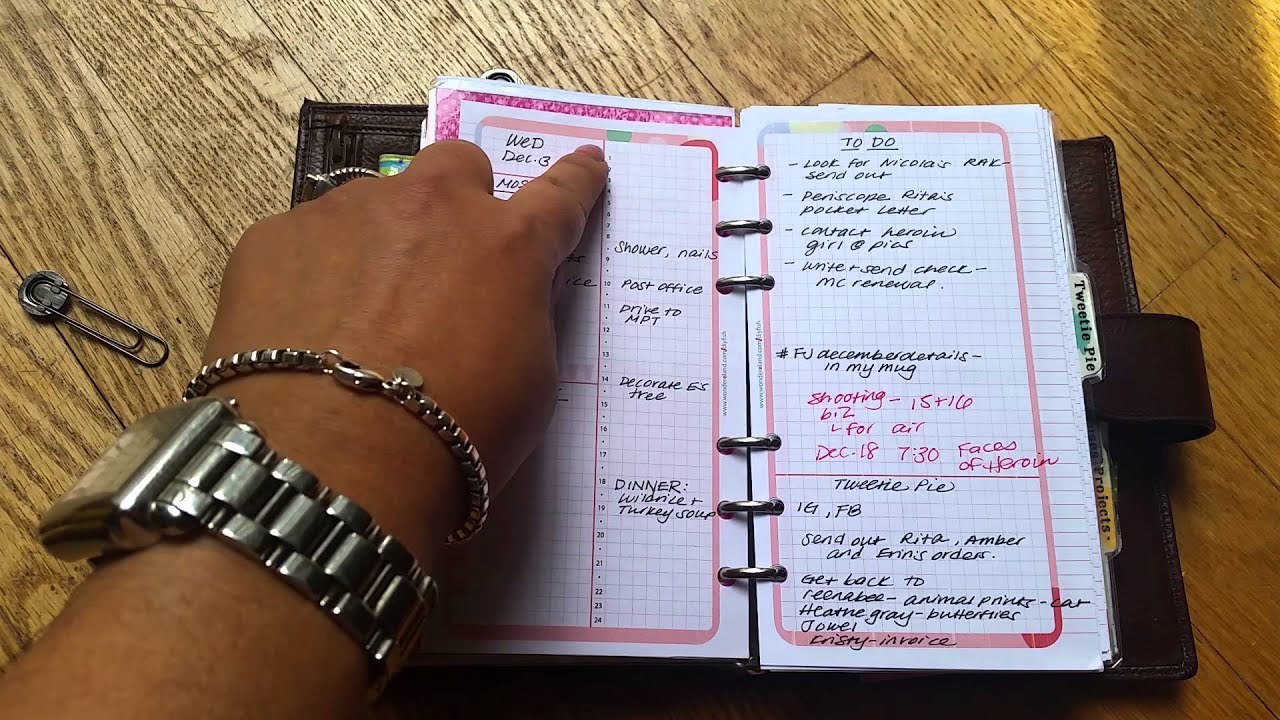 WED
Dec. 13
MOS
ice
1
8
9
10
11
12
13
14
15
16
17
18
19
20
21
22
23
24
Shower, nails
Post office
Drive to
MPT
Decorate E's
tree
DINNER:
Wild rice +
Turkey soup
www.wonderland.com/diyfish
www.wonderland.com/diyfish
TO DO
- Look for Nicola's RAK -
send out
- Periscope Rita's
pocket letter
- contact heroin
girl @ pics
- write + send check -
MC renewal.
# FJ decemberdetails -
in my mug
Shooting - 15+16
biz
for air
Dec. 18 7:30 Faces
of Heroin
Tweetie Pie
IG, FB
Send out Rita, Amber
and Erin's orders.
Get back to
reenabee - animal prints - cat
Heathe gray - butterflies
Jowel
Kristy - invoice
Tweetie Pie
Projects.